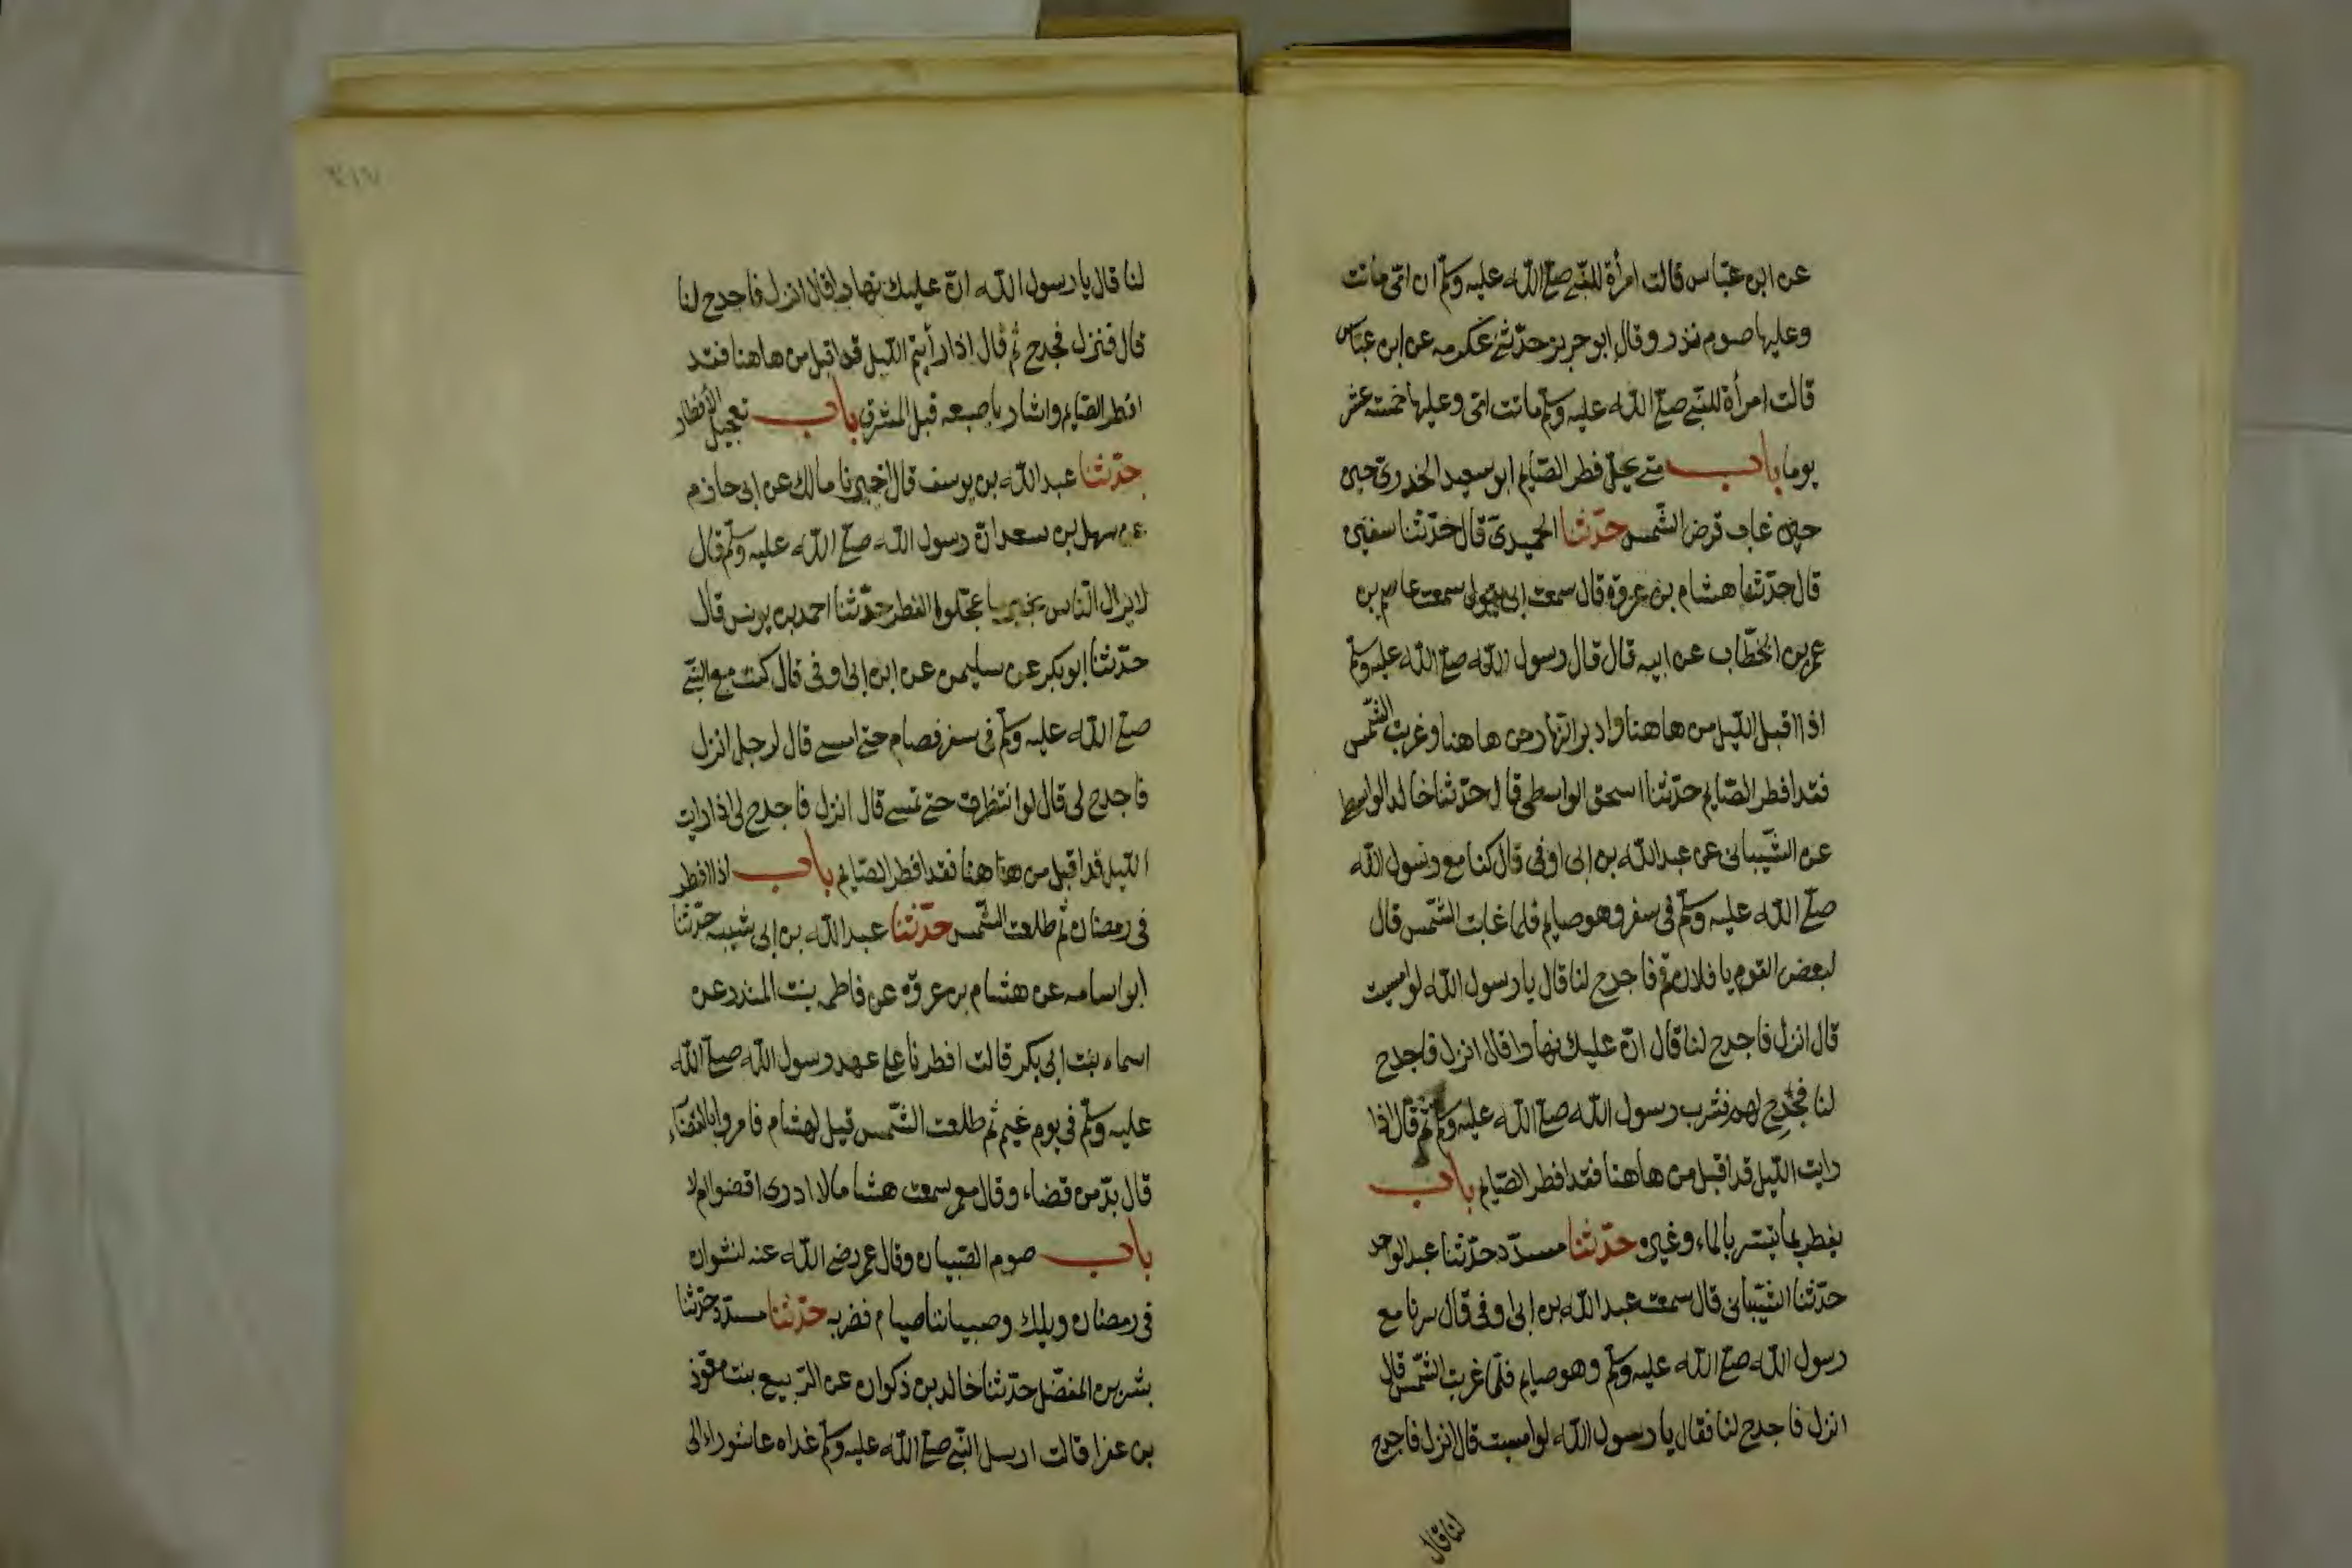 عن ابن عبّاس قالت امرأة للنّبي صلّى اللّه عليه وسلّم ان امّى ماتت
وعليها صوم نذر وقال ابو حريز حدّثنى عكرمه عن ابن عبّاس
قالت امرأة للنّبي صلّى اللّه عليه وسلّم ماتت امّى وعليها خمسة عشر
يوما باب متى يحلّ فطر الصّايم ابو سعيد الخدرى حين
حين غاب قرض الشّمس حدّثنا الحميدىّ قال حدّثنا سفين
قال حدّثنا هشام بن عروة قال سمعت ابى يقول سمعت عاصم بن
عمر بن الخطّاب عن ابيه قال قال رسول اللّه صلّى اللّه عليه وسلّم
اذا اقبل اللّيل من هاهنا وادبر النّهار من هاهنا وغربت الشّمس
فقد افطر الصّايم حدّثنا اسحق الواسطى قال حدّثنا خالد الواسطى
عن الشّيبانى عن عبد اللّه بن ابى اوفى قال كنا مع رسول اللّه
صلّى اللّه عليه وسلّم فى سفر وهو صايم فلما غابت الشّمس قال
لبعض القوم يا فلان قم فاجدح لنا قال يا رسول اللّه لو امسيت
قال انزل فاجدح لنا قال انّ عليك نهارا قال انزل فاجدح
لنا فجدح لهم فشرب رسول اللّه صلّى اللّه عليه وسلّم ثم قال اذا
رايت اللّيل قد اقبل من هاهنا فقد افطر الصّايم باب
يفطر بما تيسّر بالماء وغيره حدّثنا مسدّد حدّثنا عبد الواحد
حدّثنا الشّيبانى قال سمعت عبد اللّه بن ابى اوفى قال سرنا مع
رسول اللّه صلّى اللّه عليه وسلّم وهو صايم فلمّا غربت الشّمس قال
انزل فاجدح لنا فقال يا رسول اللّه لو امسيت قال انزل فاجدح
لنا قال
٣١٧
لنا قال يا رسول اللّه انّ عليك نهارا قال انزل فاجدح لنا
قال فنزل فجدح ثم قال اذا رأيتم اللّيل قد اقبل من هاهنا فقد
افطر الصّايم واشار باصبعه قبل المشرق باب تعجيل الأفطار
حدّثنا عبد اللّه بن يوسف قال اخبرنا مالك عن ابى حازم
عن سهل بن سعد انّ رسول اللّه صلّى اللّه عليه وسلّم قال
لا يزال النّاس بخير ما عجّلوا الفطر حدّثنا احمد بن يونس قال
حدّثنا ابو بكر عن سليمن عن ابن ابى اوفى قال كنت مع النّبي
صلّى اللّه عليه وسلّم فى سفر فصام حتى امسى قال لرجل انزل
فاجدح لى قال لو انتظرت حتى تمسى قال انزل فاجدح لى اذا رايت
اللّيل قد اقبل من هاهنا فقد افطر الصّايم باب اذا افطر
فى رمضان ثم طلعت الشّمس حدّثنا عبد اللّه بن ابى شيبه حدّثنا
ابو اسامه عن هشام بن عروة عن فاطمه بنت المنذر عن
اسماء بنت ابى بكر قالت افطرنا على عهد رسول اللّه صلّى اللّه
عليه وسلّم فى يوم غيم ثم طلعت الشّمس قيل لهشام فامروا بالقضآء
قال بدّ من قضاء وقال معمر سمعت هشاما لا ادرى اقضوا ام لا
باب صوم الصّبيان وقال عمر رضى اللّه عنه لنشوان
فى رمضان ويلك وصبياننا صيام فضربه حدّثنا مسدّد حدّثنا
بشر بن المفضّل حدّثنا خالد بن ذكوان عن الرّبيع بنت معوّذ
بن عفرا قالت ارسل النّبي صلّى اللّه عليه وسلّم غداه عاشوراء الى